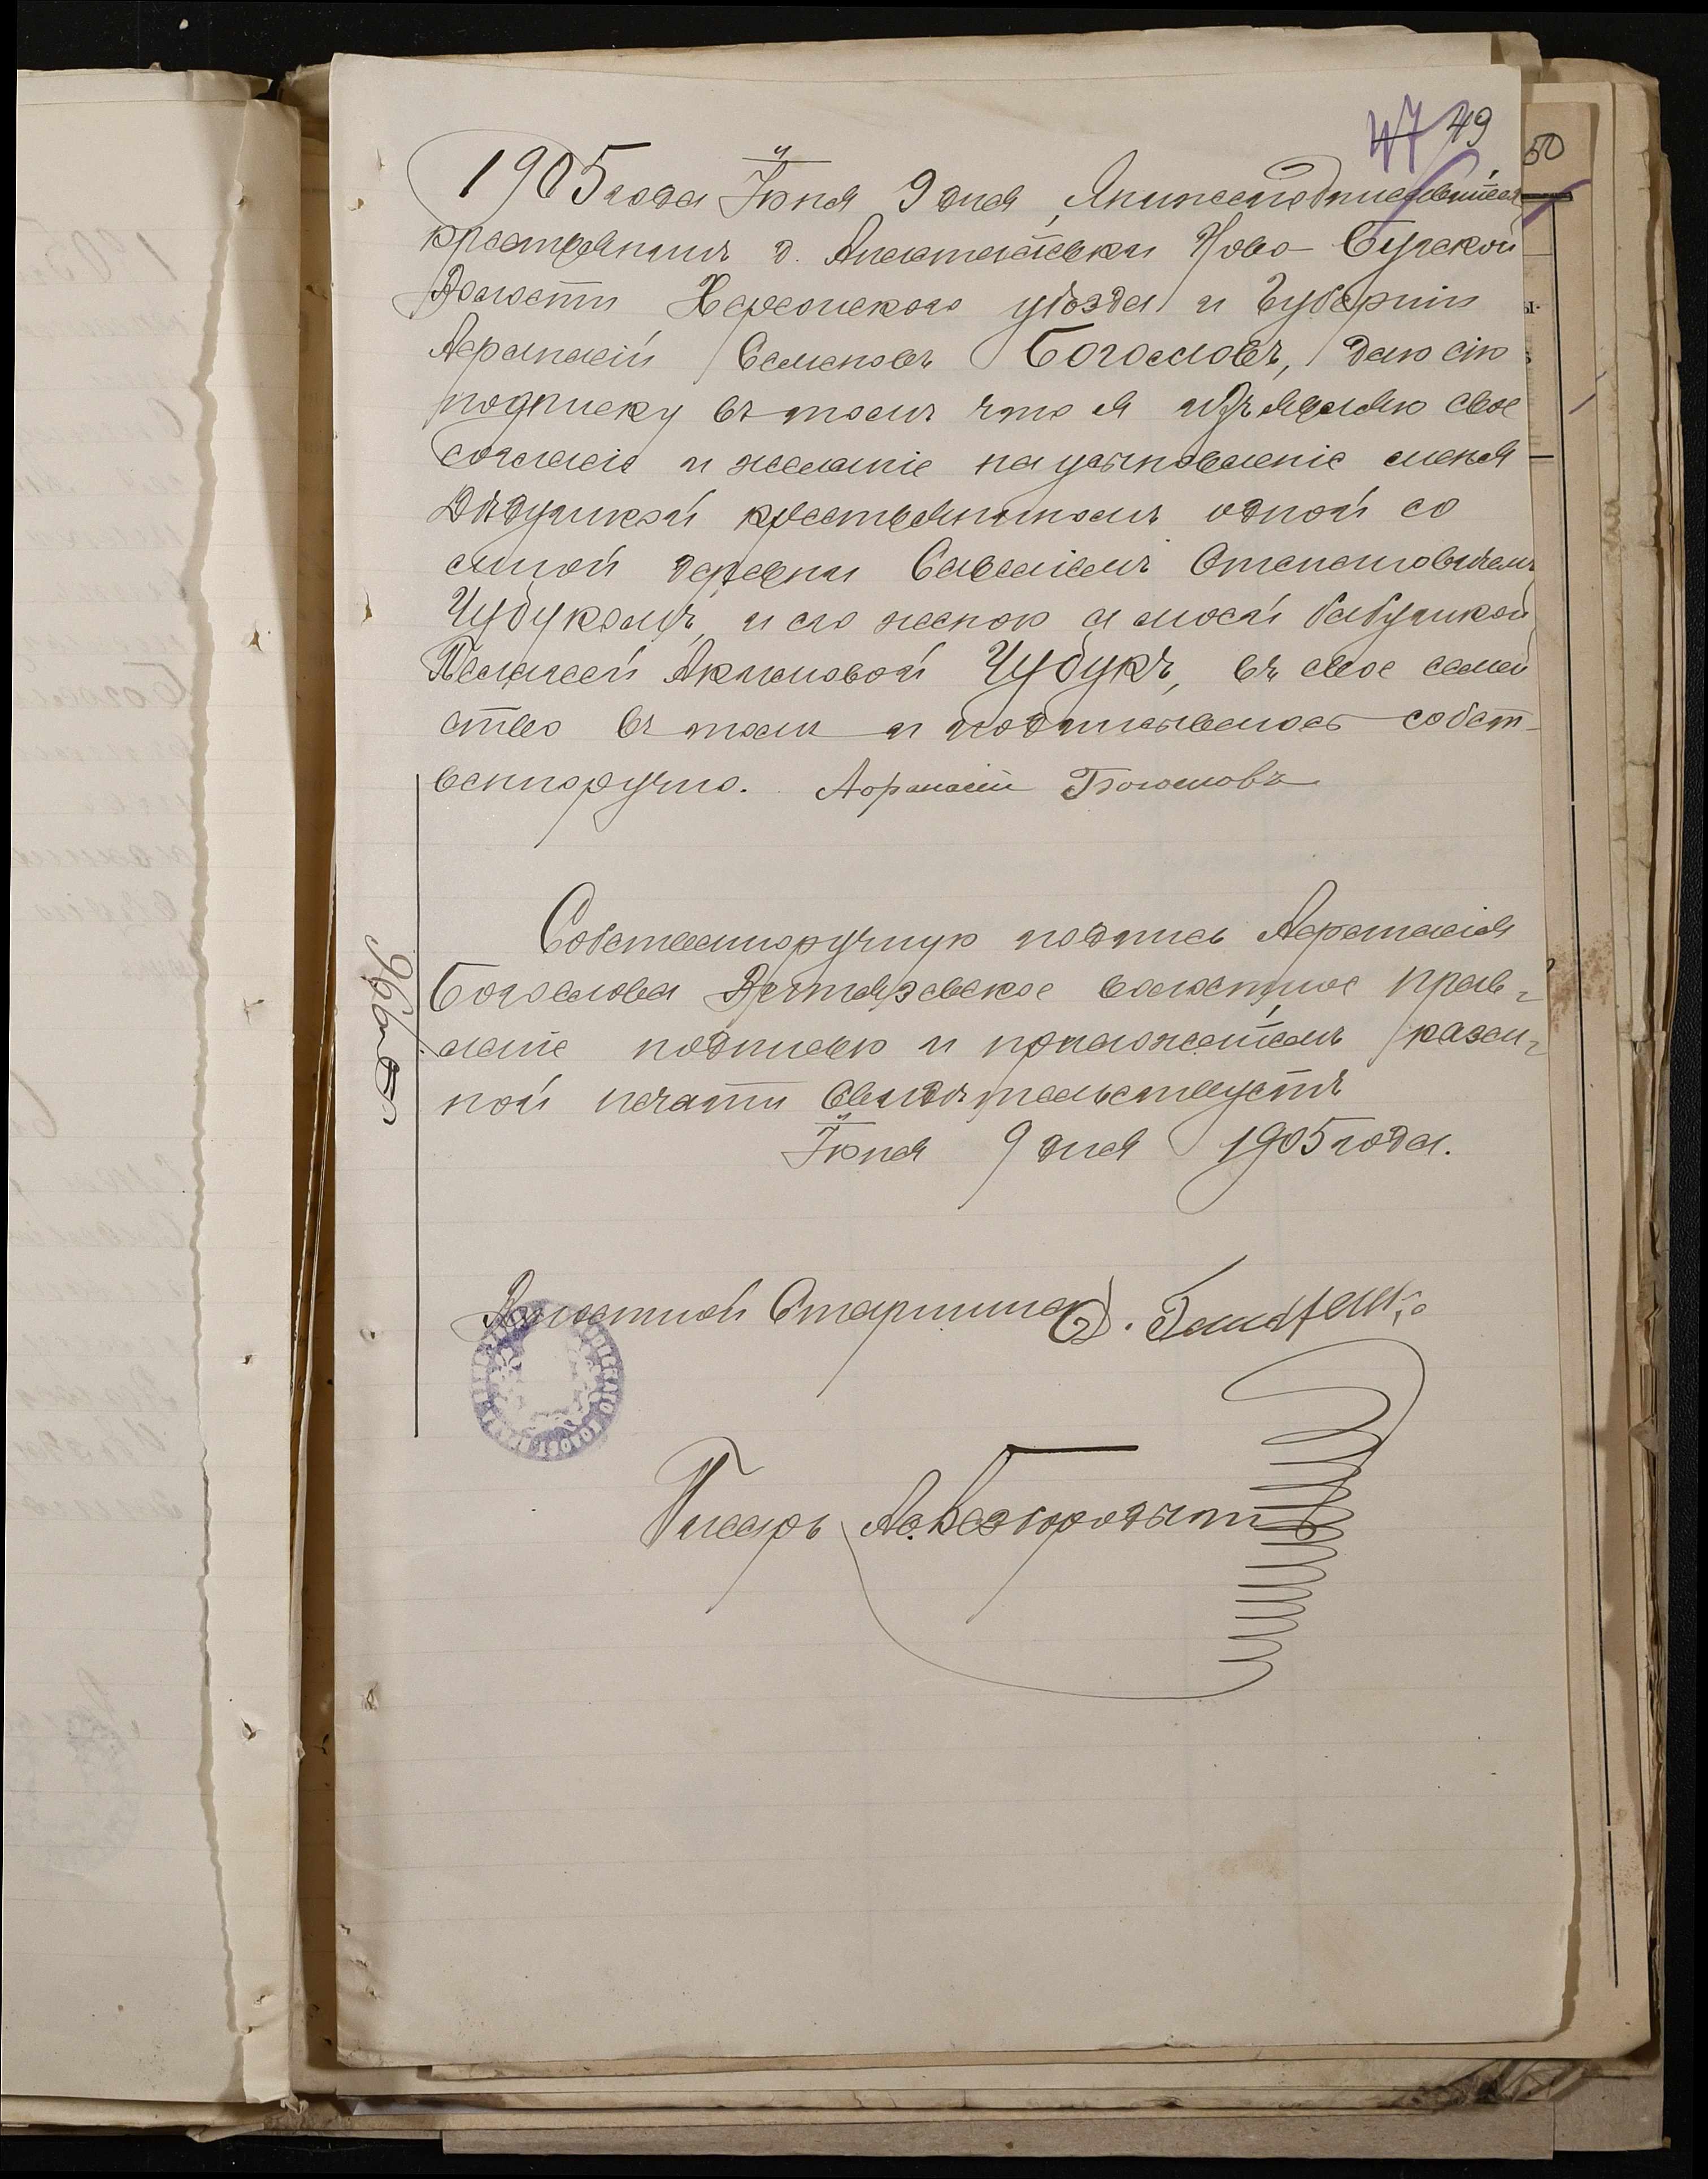 47 49
50
1905 года Іюня 9 дня, Я нижеподписавшійся
крестьянинъ д. Анастасьевки Ново-Бугской
Волости Херсонскаго уѣзда и Губерніи
Афанасій Семеновъ Богословъ, даю сію
подписку въ томъ что я изъявляю свое
согласіе и желаніе на усыновленіе меня
Дѣдушкой крестьяниномъ одной со
мной деревни Савеліемъ Степановичемъ
Чубукомъ, и его женою а моей бабушкой
Пелагеей Акимовой Чубукъ, въ свое семей
ство въ томъ и подписываюсь собст-
венноручно. Афанасій Богословъ
Собственноручную подпись Афанасія
Богослова Витязевское волостное прав-
леніе подписью и приложеніемъ казен-
ной печати свидѣтельствуетъ
Іюня 9 дня 1905 года.
№ 996
Волостной Старшина
Писарь